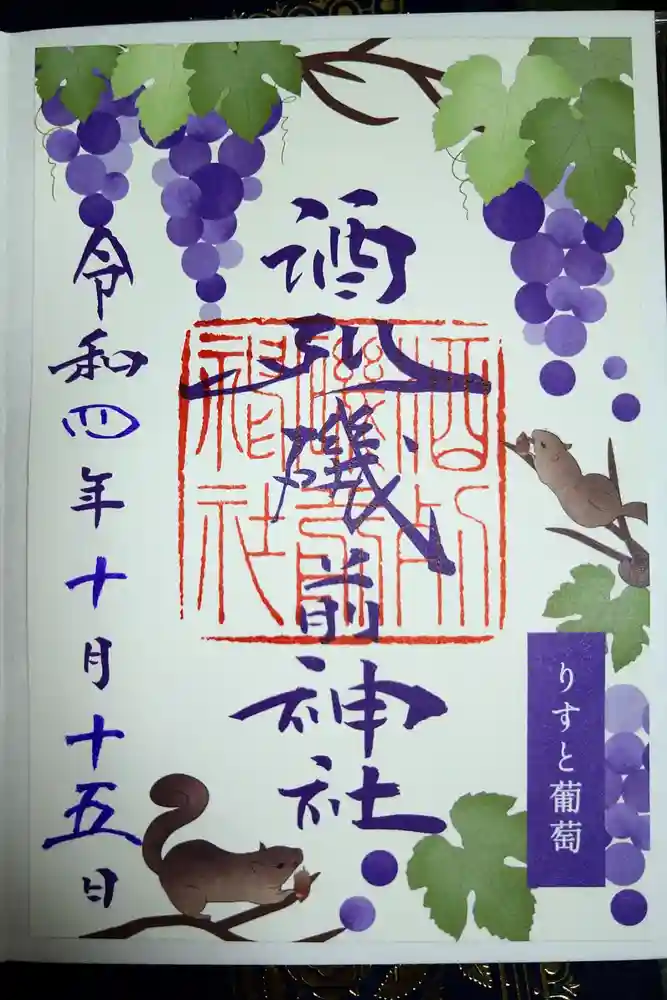 りすと葡萄
酒列磯前神社
酒列磯前神社
令和四年十月十五日